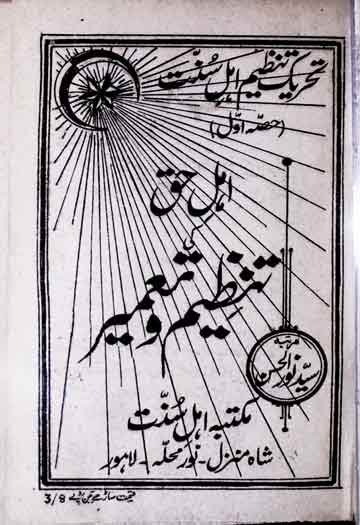 تحریک تنظیم اہل سُنّت
(حصّہ اوّل)
اہل حق
کی
تنظیم و تعمیر
مرتبہ
سیّد نور الحسن
مکتبہ اہل سُنّت
شاہ منزل - نور محلہ - لاہور
قیمت ساڑھے تین روپے 3/8